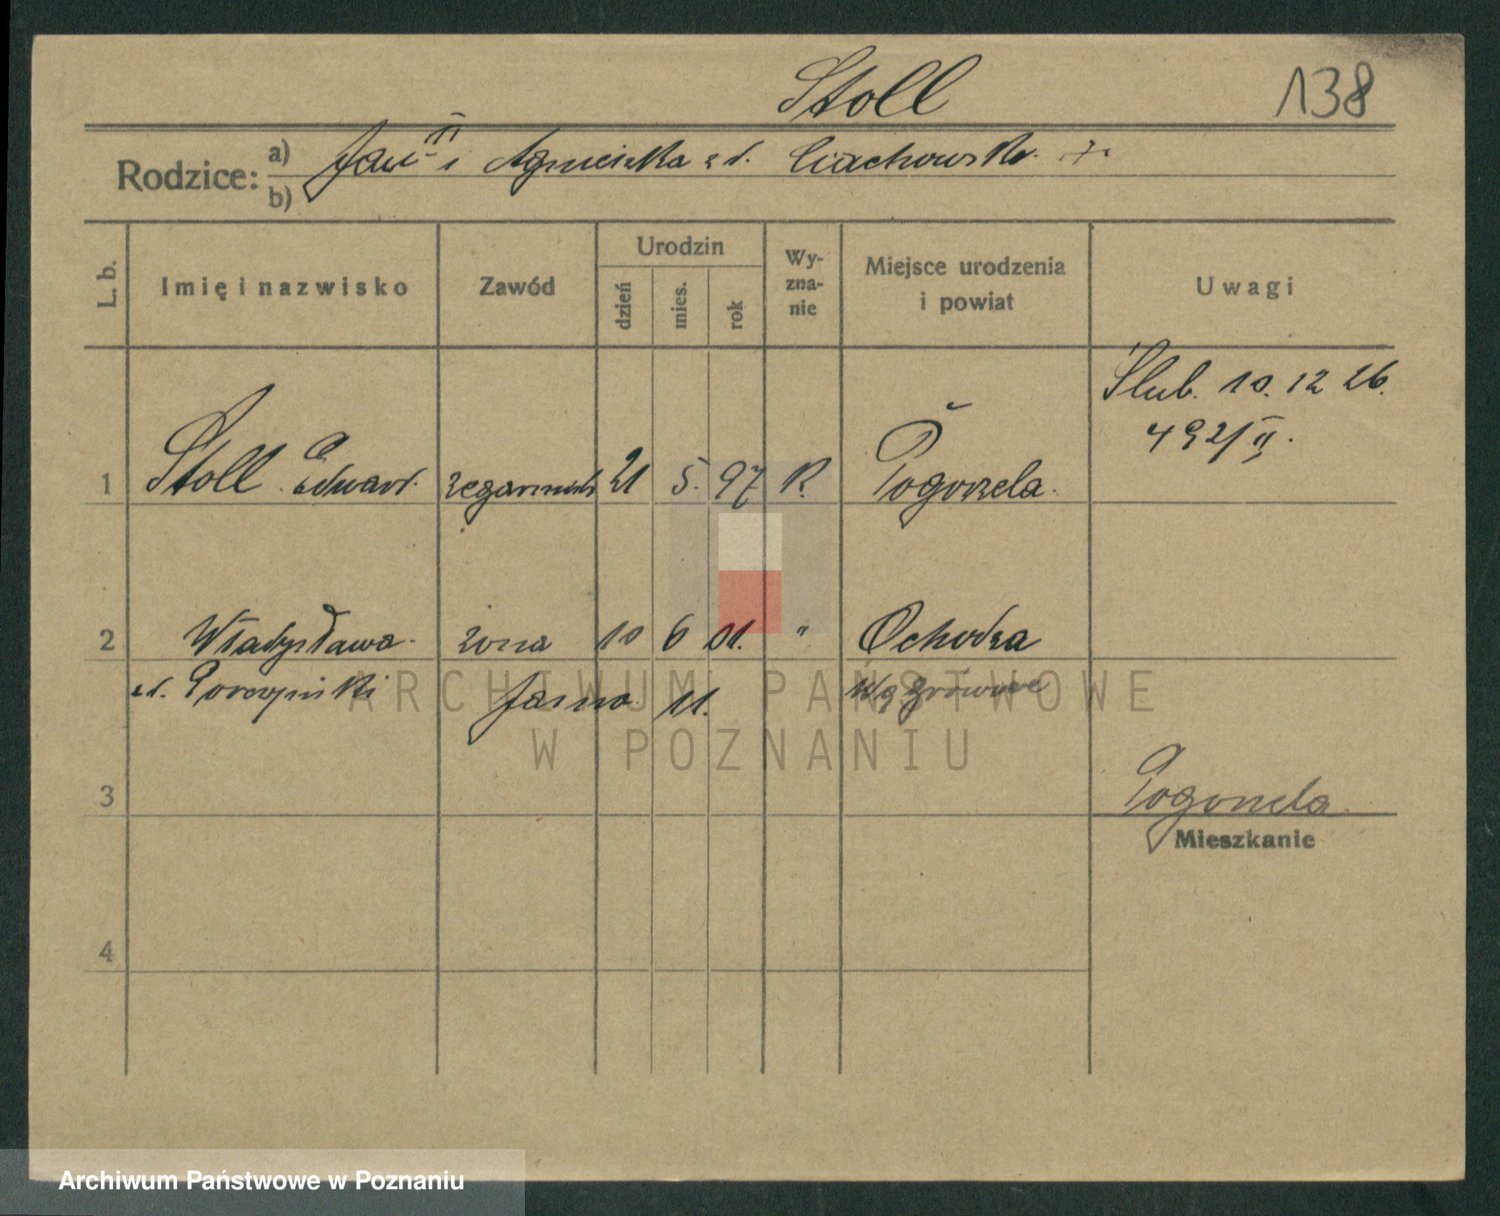 Stoll
138
Rodzice: a) Jan i Agnieszka z d. Ciachowska
b)
L. b.
Imię i nazwisko
Zawód
Urodzin
dzień
mies.
rok
Wy-
zna-
nie
Miejsce urodzenia
i powiat
Uwagi
Ślub. 10. 12 26.
492/II.
1 Stoll Edward. zegarmistrz 21 5. 97 R. Pogorzela.
2 Władysława żona 10 6 01. " Ochodza
z d. Jasna 11. Wągrowiec
ARCHIWUM PAŃSTWOWE
W POZNANIU
3 Pogorzela.
Mieszkanie
4
Archiwum Państwowe w Poznaniu